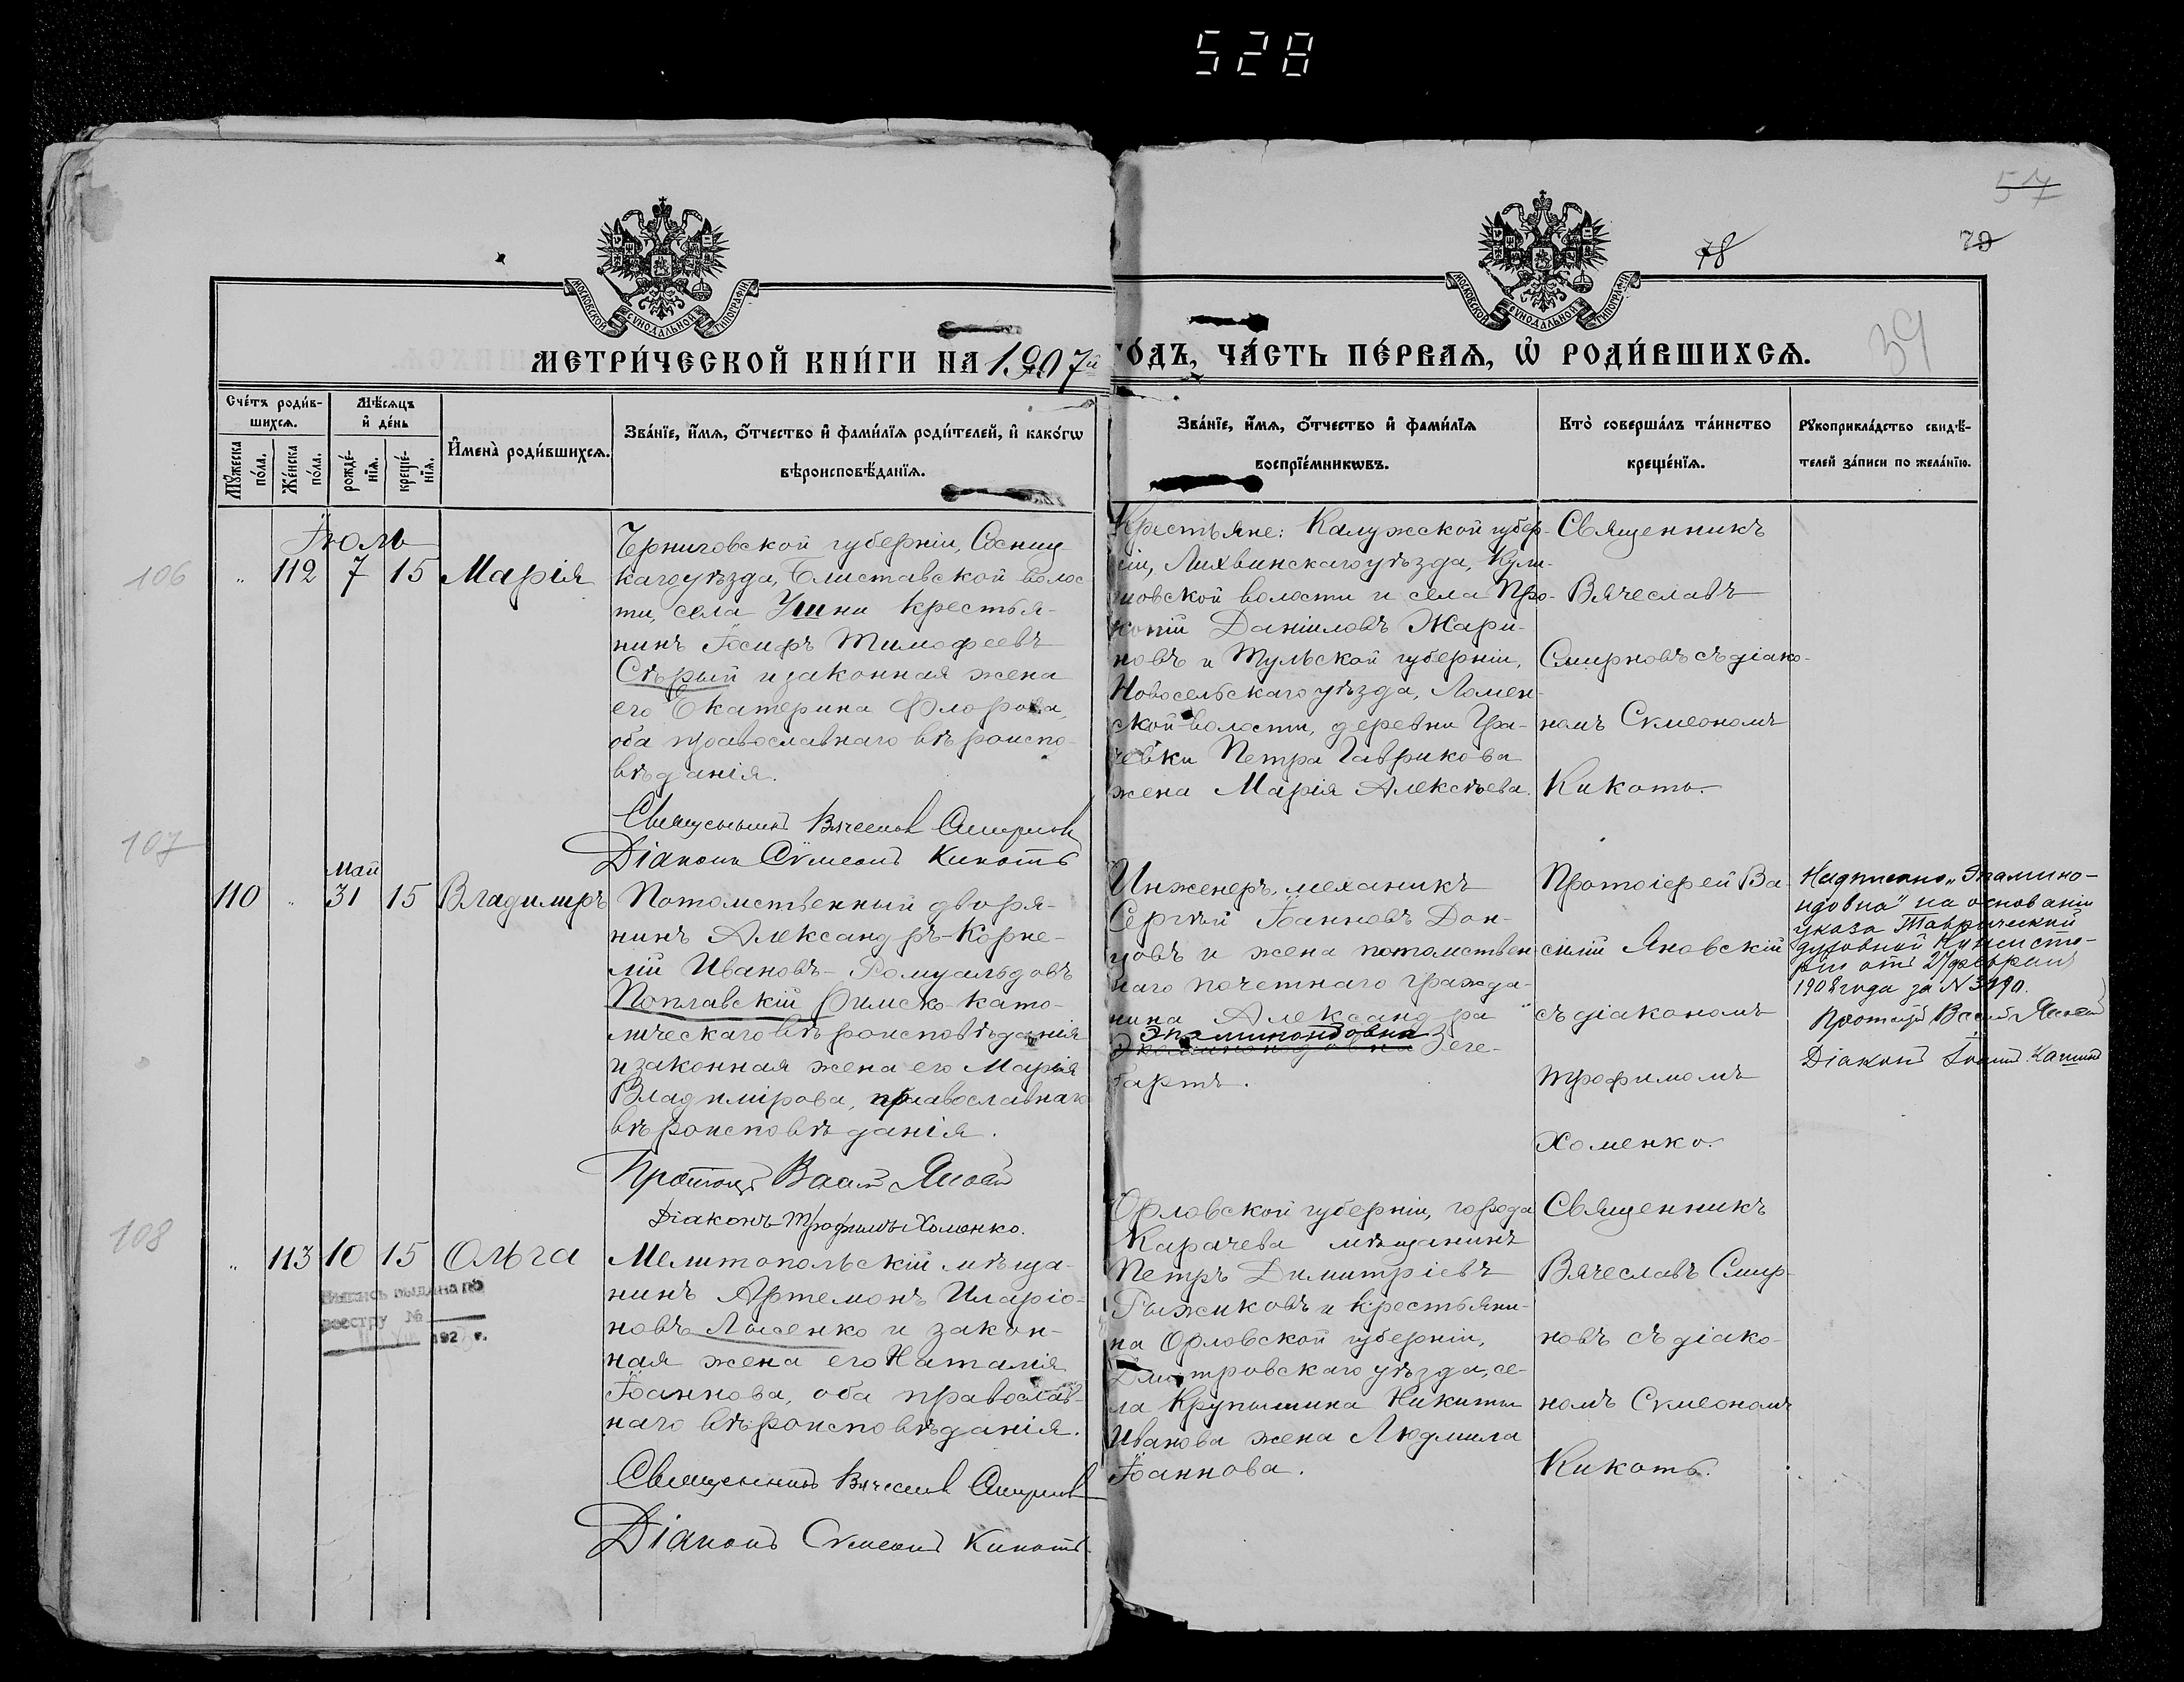 528
57
78
79
39
МОСКОВСКОЙ СѴНОДАЛЬНОЙ ТИПОГРАФІИ
МОСКОВСКОЙ СѴНОДАЛЬНОЙ ТИПОГРАФІИ
МЕТРИ́ЧЕСКОЙ КНИ́ГИ НА 1907й
ГО́ДЪ, ЧА́СТЬ ПЕ́РВАЯ, Ѽ РОДИ́ВШИХСЯ.
Сче́тъ роди́в-
шихся.
Мѣ́сяцъ
и де́нь
Му́жеска по́ла.
Же́нска по́ла.
рожде́-
нія.
креще́-
нія.
Имена̀ роди́вшихся.
Зва́ніе, и́мя, о́тчество и фами́лія роди́телей, и како́гѡ
вѣроисповѣ́данія.
Зва́ніе, и́мя, о́тчество и фами́лія
воспріе́мникѡвъ.
Кто̀ соверша́лъ та́инство
креще́нія.
Рукоприкла́дство свидѣ́-
телей за́писи по жела́нію.
Іюль
106
„ 112 7 15 Марія
Черниговской губерніи, Сосниц-
каго уѣзда, Блиставской волос-
ти, села Ушни крестья-
нинъ Іосифъ Тимофеевъ
Сѣрый и законная жена
его Екатерина Флорова,
оба православнаго вѣроиспо-
вѣданія.
Священникъ Вячеслав Смирнов
Діаконъ Сѵмеонъ Кикоть
Крестьяне: Калужской губер-
ніи, Лихвинскаго уѣзда,
новской волости и села Про-
копій Даніиловъ Жари-
новъ и Тульской губерніи,
Новосельскаго уѣзда, Ломен-
ской волости, деревни Гра-
чевки Петра Гаврикова
жена Марія Алексѣева.
Священникъ
Вячеславъ
Смирновъ съ діако-
номъ Сѵмеономъ
Кикоть.
107
Май
110 „ 31 15 Владимиръ
Потомственный дворя-
нинъ Александръ-Корне-
лій Ивановъ-Ромуальдовъ
Поплавскій Римско-като-
лическаго вѣроисповѣданія
и законная жена его Марія
Владимірова, православнаго
вѣроисповѣданія.
Діаконъ Трофимъ Хоменко.
Инженеръ-механикъ
Сергѣй Іоанновъ Дон-
цовъ и жена потомствен-
наго почетнаго гражда-
нина Александра
Эпаминондовна
Зеге-
гартъ.
Протоіерей Ва-
силій Яновскій
съ діакономъ
Трофимомъ
Хоменко.
Надписано „Эпамино-
ндовна" на основаніи
указа Таврической
духовной Консисто-
ріи отъ 27 февраля
1908 года за № 3190.
Діаконъ
108
„ 113 10 15 Ольга
Выпись выдана по
реестру №
192 г.
Мелитопольскій мѣща-
нинъ Артемонъ Иларіо-
новъ Лысенко и закон-
ная жена его Наталія
Іоаннова, оба православ-
наго вѣроисповѣданія.
Священникъ Вячеслав Смирнов
Діаконъ Сѵмеонъ Кикоть
Орловской губерніи, города
Карачева мѣщанинъ
Петръ Димитріевъ
Рыжиковъ и крестьяни-
на Орловской губерніи,
Дмитровскаго уѣзда, се-
ла Крупышина Никиты
Иванова жена Людмила
Іоаннова.
Священникъ
Вячеславъ Смир-
новъ съ діако-
номъ Сѵмеономъ
Кикоть.